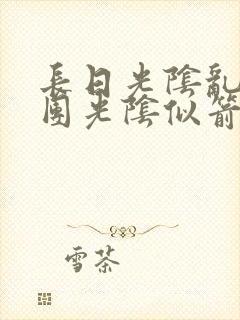 長日光陰亂
團光陰似箭
雪茶